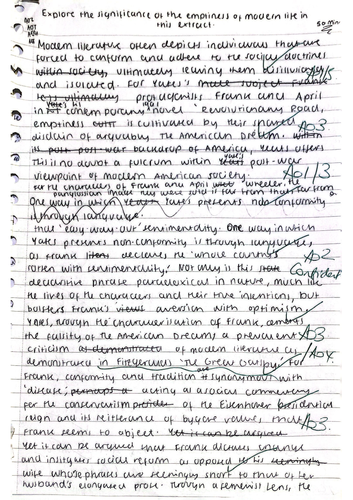 Explore the significance of the emptiness of modern life in
this extract.
50 min
Modern literature often depicts individuals that are
forced to conform and adhere to the societal doctrines
within society, ultimately leaving them disillusioned
and isolated. For Yates's
protagonists, Frank and April
in his contemporary novel 'Revolutionary Road,
emptiness is cultivated by their shared AO3
disdain of arguably the American Dream. within
its post post-war backdrop of America, Yates offers
This is no doubt a fulcrum within Yates's post-war
viewpoint of modern American society. AO1/3
For the characters of Frank and April Wheeler, the
One way in which Yates presents non-conformity
is through language.
that 'easy way out' sentimentality. One way in which
Yates presents non-conformity is through language,
as Frank declares the 'whole country's AO2
rotten with sentimentality'. Not only is this Confident
declarative phrase paradoxical in nature, much like
the lives of the characters and their true intentions, but
bolsters Frank's views aversion with optimism.
Yates, through the characterisation of Frank,
the falsity of the American Dream, a prevalent AO3
criticism as demonstrated of modern literature as
demonstrated in Fitzgerald's 'The Great Gatsby'. For /AO4
Frank, conformity and tradition are synonymous with
'disease', perhaps a acting as societal commentary
for the conservatism of the Eisenhower presidential
reign and its reliance of bygone values, that AO3
Frank seems to object. Yet it can be argued
Yet it can be argued that Frank dictates change
and instigates social reform as opposed to his seemingly
wife whose phrases are seemingly short to that of her
husband's elongated prose. Through a feminist lens, the